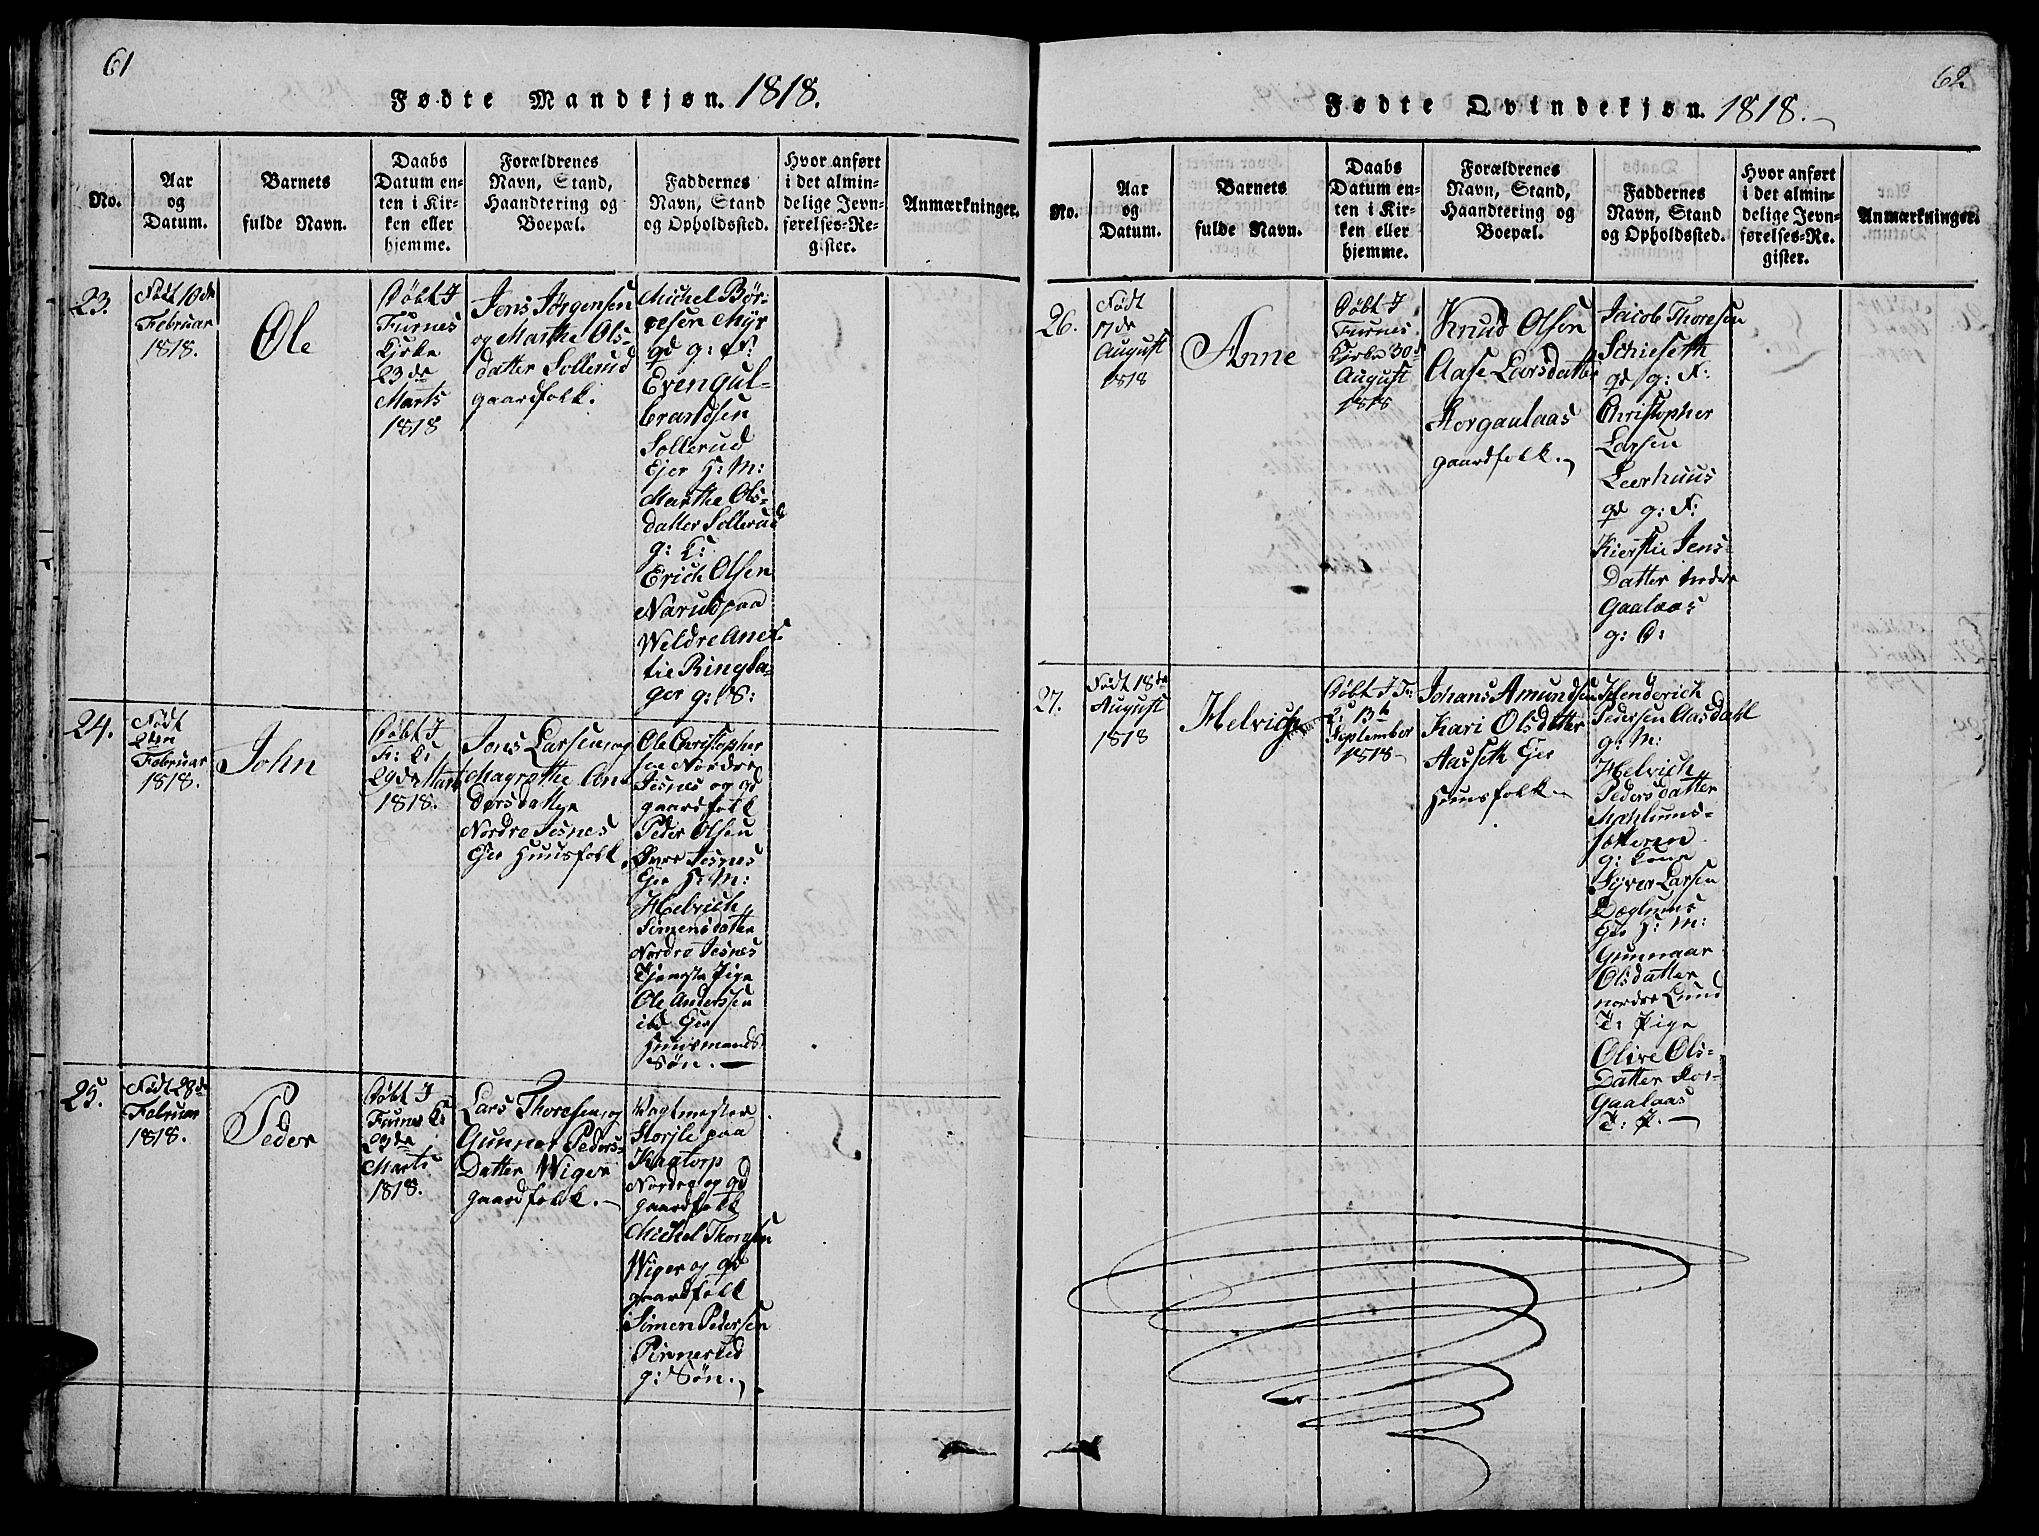 61
Fødte Mandkjøn. 1818.
No.
Aar
og
Datum.
Barnets
fulde Navn.
Daabs
Datum en-
ten i Kir-
ken eller
hjemme.
Forældrenes
Navn, Stand,
Haandtering og
Boepæl.
Faddernes
Navn, Stand
og Opholdssted.
Hvor anført
i det almin-
delige Jevn-
førelses-Re-
gister.
Anmærkninger.
23.
Født 10de
Februar
1818.
Ole
Døbt I
Furnes
Kirke
23de
Marts
1818
Jens Jørgensen
og Marthe Ols-
datter Sollerud
gaardfolk.
Michel Bør-
resen Myr
gd g: F:
Even Gul-
brandsen
Sollerud
Ejer H: M:
Marthe Ols-
datter Sollerud
g: K:
Erich Olsen
Narud paa
Weldre Anes-
tie Ringsa-
ger g: S:
24.
Født
Februar
1818.
John
Døbt I
F: K:
29de Marts
1818.
Jens Larsen og
Magrethe An-
dersdatter
Nordre Jesnes
Eje Huusfolk
Ole Christopher
sen Nordre
Jesnes og gd
gaardfolk
Peder Olsen
Øvre Jesnes
Eje H: M:
Helvich
Simensdatter
Nordre Jesnes
Tjeneste Pige
Ole Anderssen
ibd Eje
Huusmands
Søn.
25.
Født 28de
Februar
1818.
Peder
Døbt I
Furnes K:
29de
Marts
1818.
Lars Thoresen og
Gunnor Peders-
Datter Wiger
gaardfolk.
Vagtmester
Storjle paa
Kaatorp
Nordre og gd
gaardfolk
Michel Thoresen
Wiger og gd
gaardfolk
Simen Pedersen
Pinnerud
g: Søn.
62
Fødte Qvindekjøn. 1818.
No.
Aar
og
Datum.
Barnets
fulde Navn.
Daabs
Datum en-
ten i Kir-
ken eller
hjemme.
Forældrenes
Navn, Stand,
Haandtering og
Boepæl.
Faddernes
Navn, Stand
og Opholdssted.
Hvor anført
i det almin-
delige Jevn-
førelses-Re-
gister.
Anmærkninger.
26.
Født
17de
August
1818
Anne
Døbt I
Furnes
Kirke 30de
August
1818
Knud Olsen
Aase Larsdatter
Korgaulaas
gaardfolk.
Jacob Thoresen
Schieseth
gd g: F:
Christopher
Larsen
Leerhuus
gd g: F:
Kiersti Jens
Datter nedre
Gaalaas
g: D:
27.
Født 18de
August
1818
Helvich
Døbt I F:
K: 13de
September
1818
Johans Amundsen
Kari Olsdatter
Aasseth Eje
Huusfolk
Henderich
Pedersen Aasdahl
g: M:
Helvich
Pedersdatter
g: Kone
Syver Larsen
Dæglums
Eje H: M:
Gunnaar
Olsdatter
nordre Lund
T: Pige
Olive Ols-
Datter Kor-
Gaalaas
T: P.